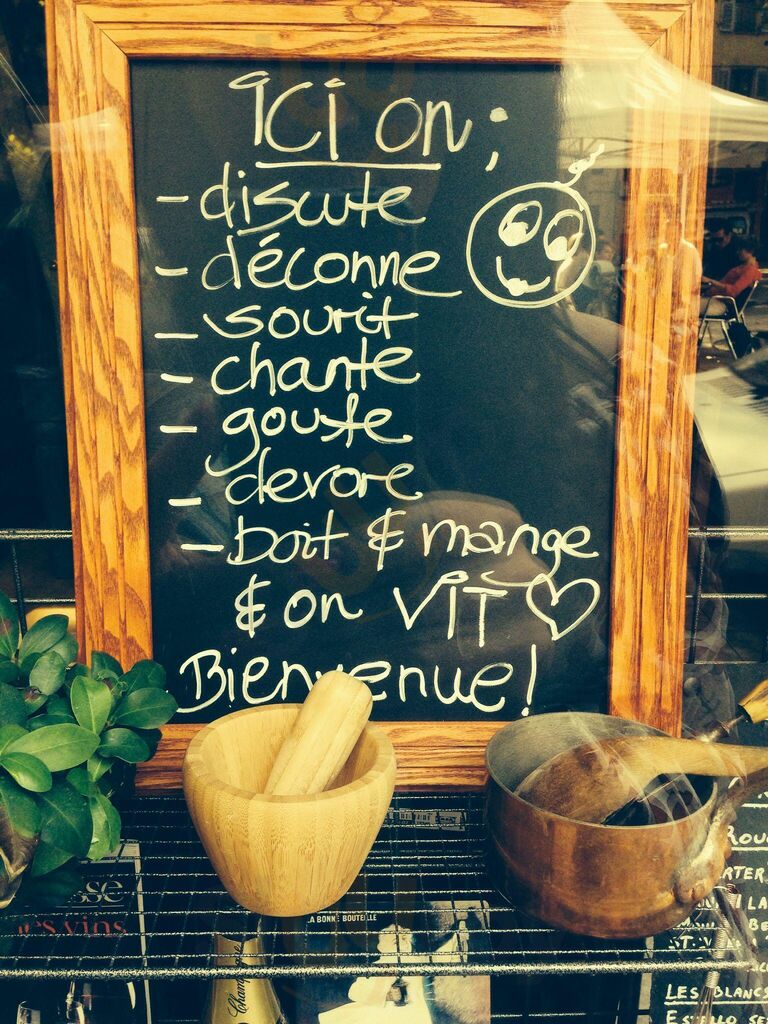 ici on ;
- discute
- déconne
- sourit
- chante
- goute
- devore
- boit & mange
& on VIT
Bienvenue!
LA BONNE BOUTEILLE
Champagne
vins
LES BLANCS